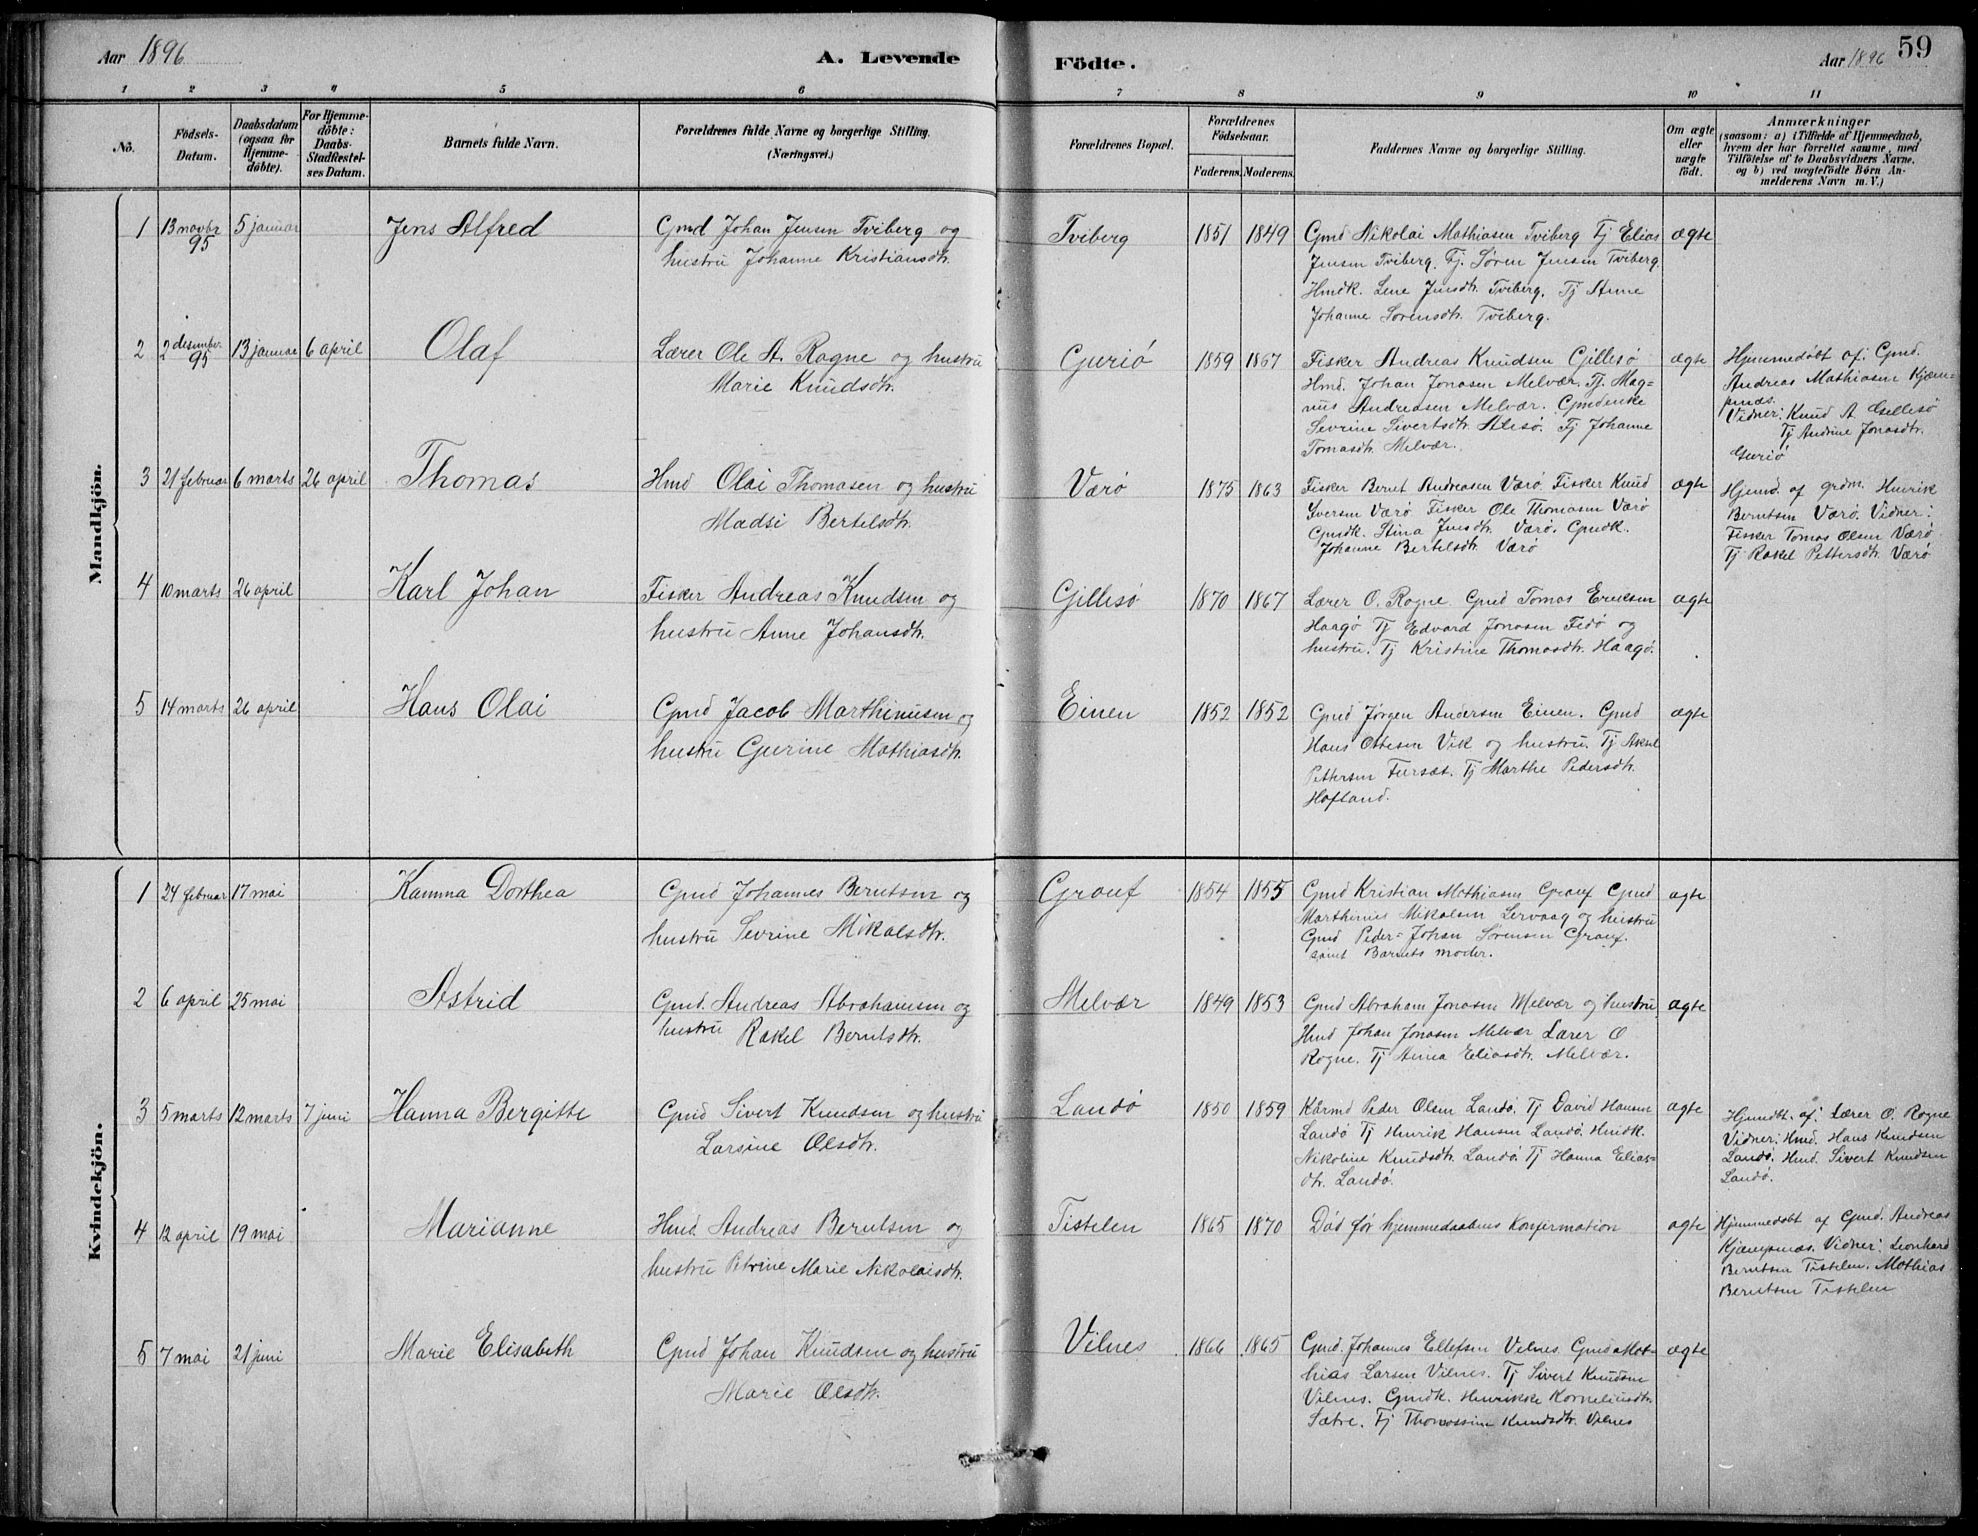 Aar 1896
A. Levende
Födte.
Aar 1896
59
1 2 3 4 5 6 7 8 9 10 11
No.
Födsels-
Datum.
Daabsdatum
(ogsaa for
Hjemme-
döbte).
For Hjemme-
döbte:
Daabs-
Stadfæstel-
ses Datum.
Barnets fulde Navn.
Forældrenes fulde Navne og borgerlige Stilling.
(Næringsvei.)
Forældrenes Bopæl.
Forældrenes
Födselsaar.
Faderens. Moderens.
Faddernes Navne og borgerlige Stilling.
Om ægte
eller
uægte
födt.
Anmærkninger
(saasom: a) i Tilfælde af Hjemmedaab,
hvem der har forrettet samme, med
Tilföielse af to Daabsvidners Navne,
og b) ved uægtefödte Börn An-
melderens Navn m. V.)
Mandkjön.
1 13 novbr 95 5 januar Jens Alfred
Gmd Johan Jensen Tviberg og
hustru Johanne Kristiansdtr.
Tviberg 1851 1849
Gmd Nikolai Mathiasen Tviberg Tj Elias
Jensen Tviberg. Tj. Søren Jensen Tviberg.
Hmdk. Lene Jensdtr. Tviberg. Tj Anne
Johanne Sørensdtr. Tviberg.
ægte
2 2 desember 95 13 januar 6 april Olaf
Lærer Ole A. Rogne og hustru
Marie Knudsdtr.
Guriø 1859 1867
Fisker Andreas Knudsen Gillesø
Hmd. Johan Jonasen Melvær. Tj. Mag-
nus Andreasen Melvær. Gmdenke
Sevrine Sivertsdtr. Alesø. Tj Johanne
Tomasdtr. Melvær.
ægte
Hjemmedøbt af: Gmd.
Andreas Mathiasen Kjæmp-
næs.
Vidner: Knud A. Gillesø
Tj Andrine Jonasdtr.
Guriø
3 21 februar 6 marts 26 april Thomas
Hmd Olai Thomasen og hustru
Madsi Bertelsdtr.
Værø 1875 1863
Fisker Bernt Andreasen Værø. Fisker Knud
Iversen Værø Fisker Ole Thomasen Værø
Gmdk. Stina Jensdtr. Værø. Gmdk.
Johanne Bertelsdtr. Værø
ægte
Hjemd. af grdm. Henrik
Berntsen Værø. Vidner:
Fisker Tomas Olsen Værø
Tj Rakel Pettersdtr. Værø
4 10 marts 26 april Karl Johan
Fisker Andreas Knudsen og
hustru Anne Johansdtr.
Gillesø 1870 1867
Lærer O. Rogne. Gmd Tomas Eriksen
Haagø Tj Edvard Jonasen Fedø og
hustru. Tj Kristine Thomasdtr. Haagø.
ægte
5 14 marts 26 april Hans Olai
Gmd Jacob Marthinusen og
hustru Gurine Mathiasdtr.
Einen 1852 1852
Gmd Jørgen Andersen Einen. Gmd
Hans Ottesen Vik og hustru. Tj Aksel
Pettersen Fursæt. Tj Marthe Pedersdtr.
Hofland.
ægte
Kvindekjön.
1 24 februar 17 mai Kamma Dorthea
Gmd Johannes Berntsen og
hustru Sevrine Mikalsdtr.
Grouf 1854 1855
Gmd Kristian Mathiasen Grouf Gmd
Marthines Mikalsen Lervaag og hustru
Gmd Peder Johan Sørensen Grouf.
samt Barnets moder.
ægte
2 6 april 25 mai Astrid
Gmd. Andreas Abrahamsen og
hustru Rakel Berntsdtr.
Melvær 1849 1853
Gmd Abraham Jonasen Melvær og hustru
Hmd Johan Jonasen Melvær Lærer O
Rogne. Tj Anna Eliasdtr. Melvær.
ægte
3 5 marts 12 marts 7 juni Hanna Bergitte
Gmd Sivert Knudsen og hustru
Larsine Olsdtr.
Landø 1850 1859
Kårmd Peder Olsen Landø. Tj David Hansen
Landø Tj Henrik Hansen Landø. Hmdk.
Nikoline Knudsdtr. Landø. Tj Hanna Elias-
dtr. Landø.
ægte
Hjemdbt. af: Lærer O. Rogne
Vidner: Hmd. Hans Knudsen
Landø. Hmd. Sivert Knudsen
Landø.
4 12 april 19 mai Marianne
Hmd. Andreas Berntsen og
hustru Petrine Marie Nikolaisdtr.
Tistelen 1865 1870
Død før hjemmedaabens Konfirmation
ægte
Hjemmedøbt af Gmd. Andreas
Kjæmpnæs. Vidner: Leonhard
Berntsen Tistelen. Mathias
Berntsen Tistelen
5 7 mai 21 juni Marie Elisabeth
Gmd Johan Knudsen og hustru
Marie Olsdtr.
Vilnes 1866 1865
Gmd. Johannes Ellefsen Vilnes. Gmd Mat-
hias Larsen Vilnes. Tj Sivert Knudsen
Vilnes. Gmdk. Henrikke Korneliusdtr.
Sætre. Tj Thomassine Knudsdtr. Vilnes
ægte